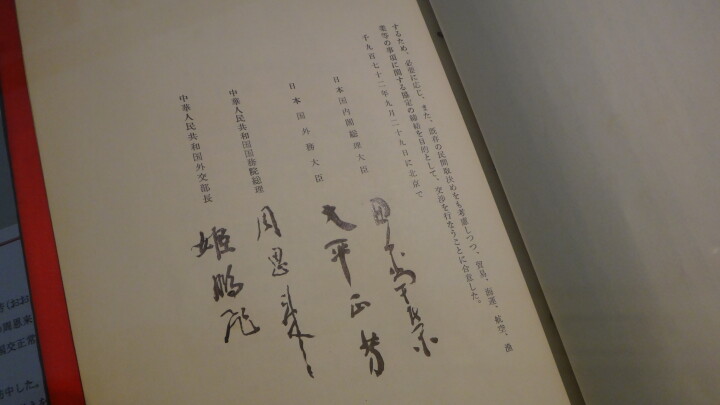 するため、必要に応じ、また、既存の民間取決めをも考慮しつつ、貿易、海運、航空、漁
業等の事項に関する協定の締結を目的として、交渉を行なうことに合意した。
千九百七十二年九月二十九日に北京で
日本国内閣総理大臣
田中角栄
日本国外務大臣
大平正芳
中華人民共和国国務院総理
周恩来
中華人民共和国外交部長
姫鵬飛
(おお
周恩来
国交正常
訪中した。